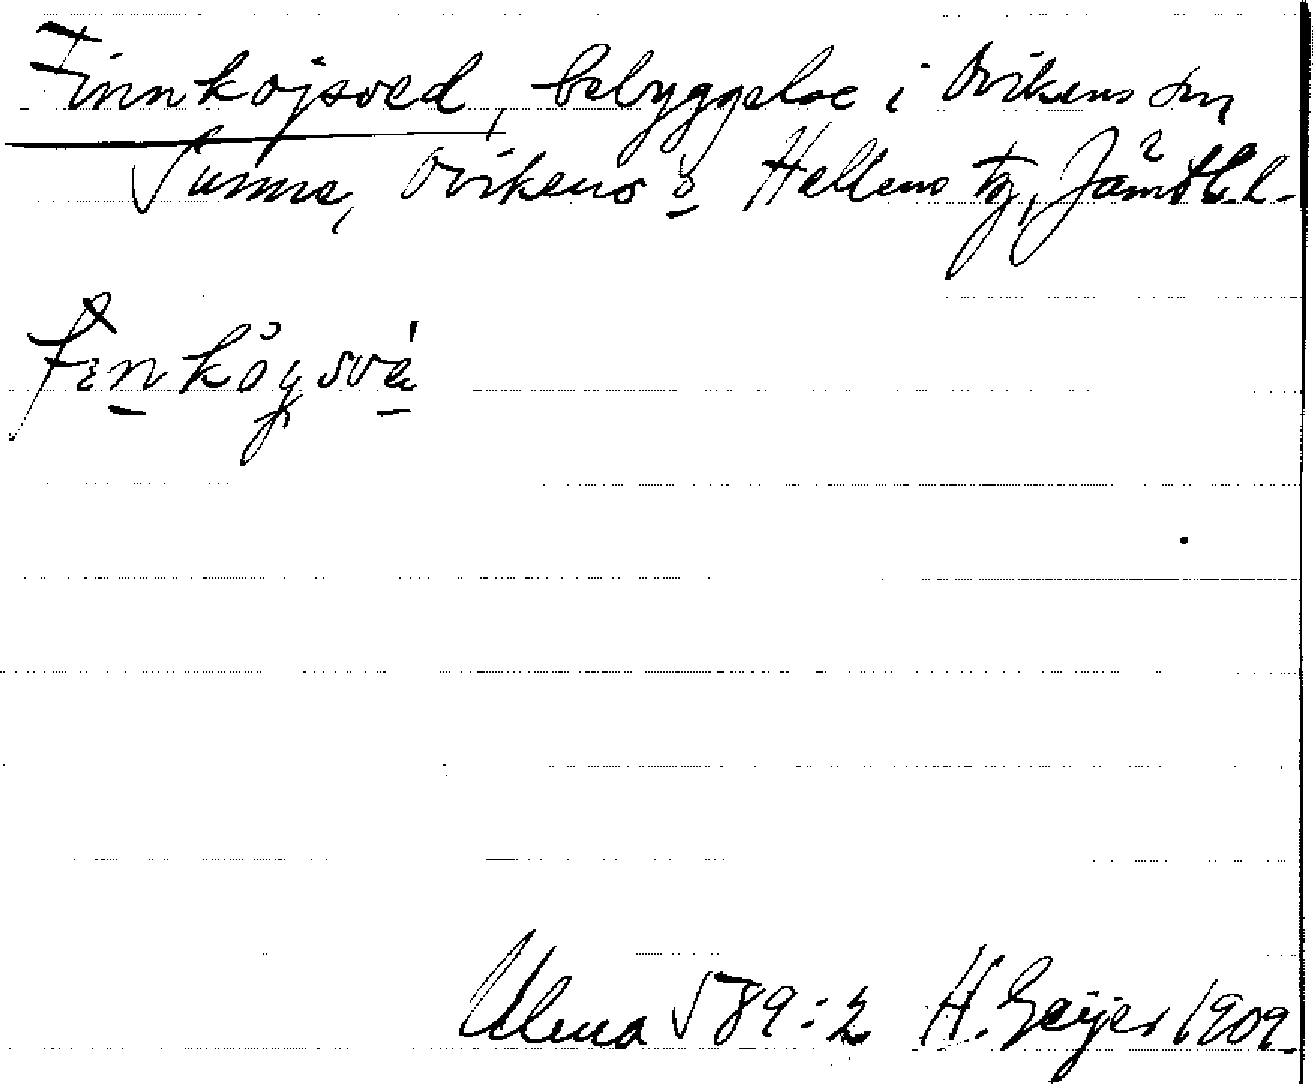 Finnköjsved, bebyggelse i Ovikens sn
Sunne, Ovikens o Hallens tg, Jämtl. l.
Ulma 589:2 H. Geijer 1909